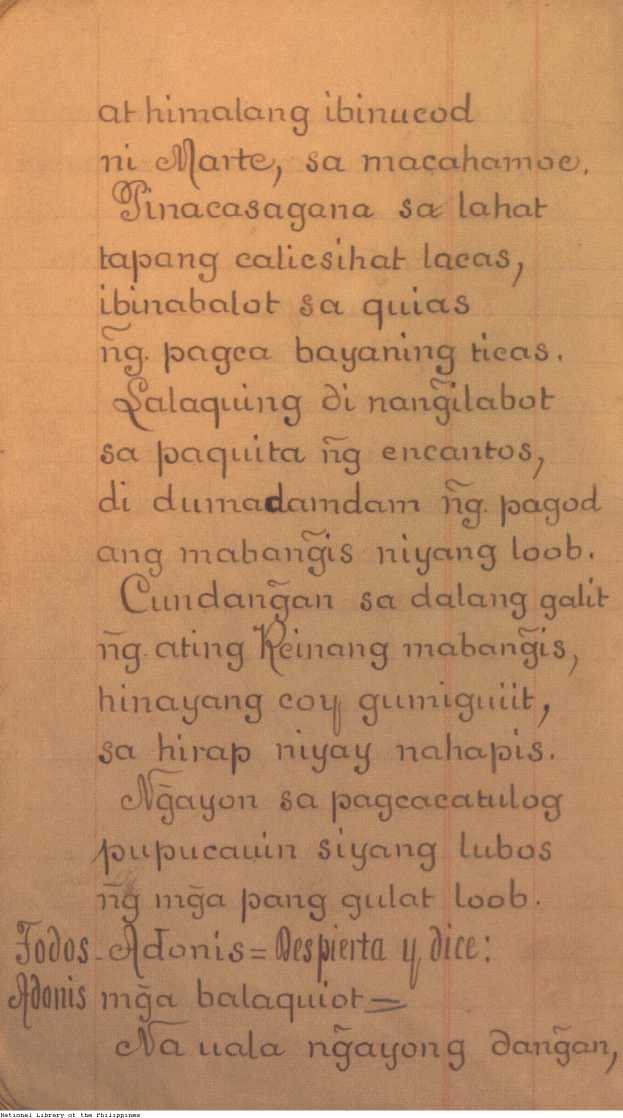 at himalang ibinucod
ni Marte, sa macahamoc.
Pinacasagana sa lahat
tapang calicsihat lacas,
ibinabalot sa quias
ñg. pagca bayaning ticas.
Lalaquing di nang̃ilabot
sa paquita ñg encantos,
di dumadamdam ñg. pagod
ang mabang̃is niyang loob.
Cundang̃an sa dalang galit
ñg. ating Reinang mabang̃is,
hinayang coy gumiguiit,
sa hirap niyay nahapis.
Ng̃ayon sa pagcacatulog
pupucauin siyang lubos
ñg mg̃a pang gulat loob.
Todos - Adonis = Despierta y dice:
Adonis mg̃a balaquiot =
Na uala ng̃ayong dang̃an,
National Library of the Philippines